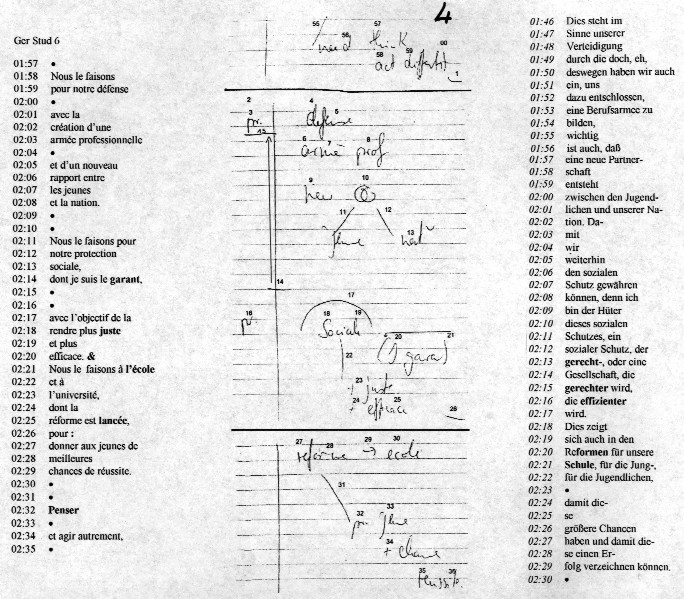 4
Ger Stud 6
01:57 •
01:58 Nous le faisons
01:59 pour notre défense
02:00 •
02:01 avec la
02:02 création d'une
02:03 armée professionnelle
02:04 •
02:05 et d'un nouveau
02:06 rapport entre
02:07 les jeunes
02:08 et la nation.
02:09 •
02:10 •
02:11 Nous le faisons pour
02:12 notre protection
02:13 sociale,
02:14 dont je suis le garant,
02:15 •
02:16 •
02:17 avec l'objectif de la
02:18 rendre plus juste
02:19 et plus
02:20 efficace. &
02:21 Nous le faisons à l'école
02:22 et à
02:23 l'université,
02:24 dont la
02:25 réforme est lancée,
02:26 pour :
02:27 donner aux jeunes de
02:28 meilleures
02:29 chances de réussite.
02:30 •
02:31 •
02:32 Penser
02:33 •
02:34 et agir autrement,
02:35 •
55 57
56
need think
58 59 00
act
1
2 4 5
3
15
6 7 8
armé prof
9 10
new
11 12
13
14
17
16 18 19
Social
20 21
(J gara)
22
23
+ juste
24 25
+ efficace
26
27 28 29 30
reforme → ecole
31
32 33
34
+ chance
35 36
01:46 Dies steht im
01:47 Sinne unserer
01:48 Verteidigung
01:49 durch die doch, eh,
01:50 deswegen haben wir auch
01:51 ein, uns
01:52 dazu entschlossen,
01:53 eine Berufsarmee zu
01:54 bilden,
01:55 wichtig
01:56 ist auch, daß
01:57 eine neue Partner-
01:58 schaft
01:59 entsteht
02:00 zwischen den Jugend-
02:01 lichen und unserer Na-
02:02 tion. Da-
02:03 mit
02:04 wir
02:05 weiterhin
02:06 den sozialen
02:07 Schutz gewähren
02:08 können, denn ich
02:09 bin der Hüter
02:10 dieses sozialen
02:11 Schutzes, ein
02:12 sozialer Schutz, der
02:13 gerecht-, oder eine
02:14 Gesellschaft, die
02:15 gerechter wird,
02:16 die effizienter
02:17 wird.
02:18 Dies zeigt
02:19 sich auch in den
02:20 Reformen für unsere
02:21 Schule, für die Jung-,
02:22 für die Jugendlichen,
02:23 •
02:24 damit die-
02:25 se
02:26 größere Chancen
02:27 haben und damit die-
02:28 se einen Er-
02:29 folg verzeichnen können.
02:30 •